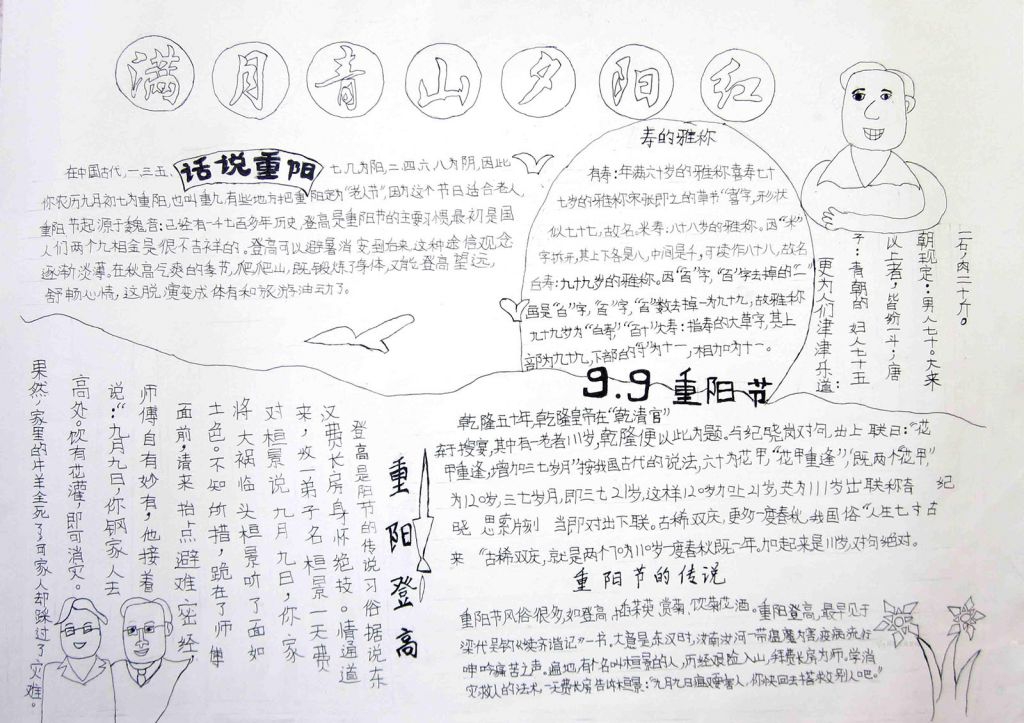 满月青山夕阳红
话说重阳
在中国古代,一三五、七九为阳,二四六八为阴,因此
你农历九月初七为重阳,也叫重九,有些地方把重阳定为"老人节",因为这个节日适合老人,
重阳节起源于魏晋:已经有一千七百多年历史,登高是重阳节的主要习惯,最初是国
人们两个九相金是很不吉祥的。登高可以避暑消灾
这种迷信观念
逐渐淡薄,在秋高气爽的季节,爬爬山,既锻炼了身体,又能登高望远,
舒畅心情,这脱演变成体育和旅游活动了。
寿的雅称
有寿:年满六十岁的雅称喜寿七十
七岁的雅称宋张即之的草书"喜"字,形状
似七十七,故名,米寿:八十八岁的雅称。因"米"
字拆开,其上下各是八,中间是千,可读作八十八,故名
白寿:九十九岁的雅称。因"百"字,"百"字去掉的"一"
画是"白"字,"百"字,"百"数去掉一为九十九,故雅称
九十九岁为"白寿""百十"大寿:指寿的大草字,其上
部为九十九,下部的"千"为十一,相加为十一。
一石,肉二十斤。
朝现定:男人七十。大来
以上者,皆纷一斗;唐
子:青朝的妇人七十五
更为人们津津乐道:
9.9重阳节
乾隆五十年,乾隆皇帝在"乾清官"
宴,其中有一老者川岁,乾隆便以此为题。与纪晓岚对句,出上联曰:"花
甲重逢,增加三七岁月"按我国古代的说法,六十为花甲,"花甲重逢",既两个"花甲",
为120岁,三七岁月,即三七21岁,这样120岁加上21岁,共为111岁出联称奇 纪
晓 思索片刻 当即对出下联。古稀双庆,更多一度春秋,我国俗"人生七十古
来 "古稀双庆,就是两个70为110岁一度春秋既一年,加起来是川岁,对句绝对。
重阳节的传说
重阳节风俗很多,如登高,插茱萸,赏菊,饮菊花酒。重阳登高,最早见于
梁代吴钧《续齐谐记》一书。大意是东汉时,汝南汝河一带瘟魔为害,疫病流行
呻吟痛苦之声。遍地,有个名叫桓景的人,历经艰险入山,拜费长房为师,学消
灾救人的法术,一天费长房告诉桓景:"九月九日瘟魔害人,你快回去搭救别人吧。"
重阳登高
登高是阳节的传说习俗据说东
汉费长房身怀绝技。情通道
来,收一弟子名桓景一天费
对桓景说九月九日,你家
将大祸临头桓景听了面如
土色。不知所措,跪在了师
面前,请来抬点避难密经
师傅自有妙有,他接着
说:"九月九日,你钢家人去
高处。饮有花灌,即可消灾。
果然,家里的牛羊全死了了可家人却踩过了灾难。